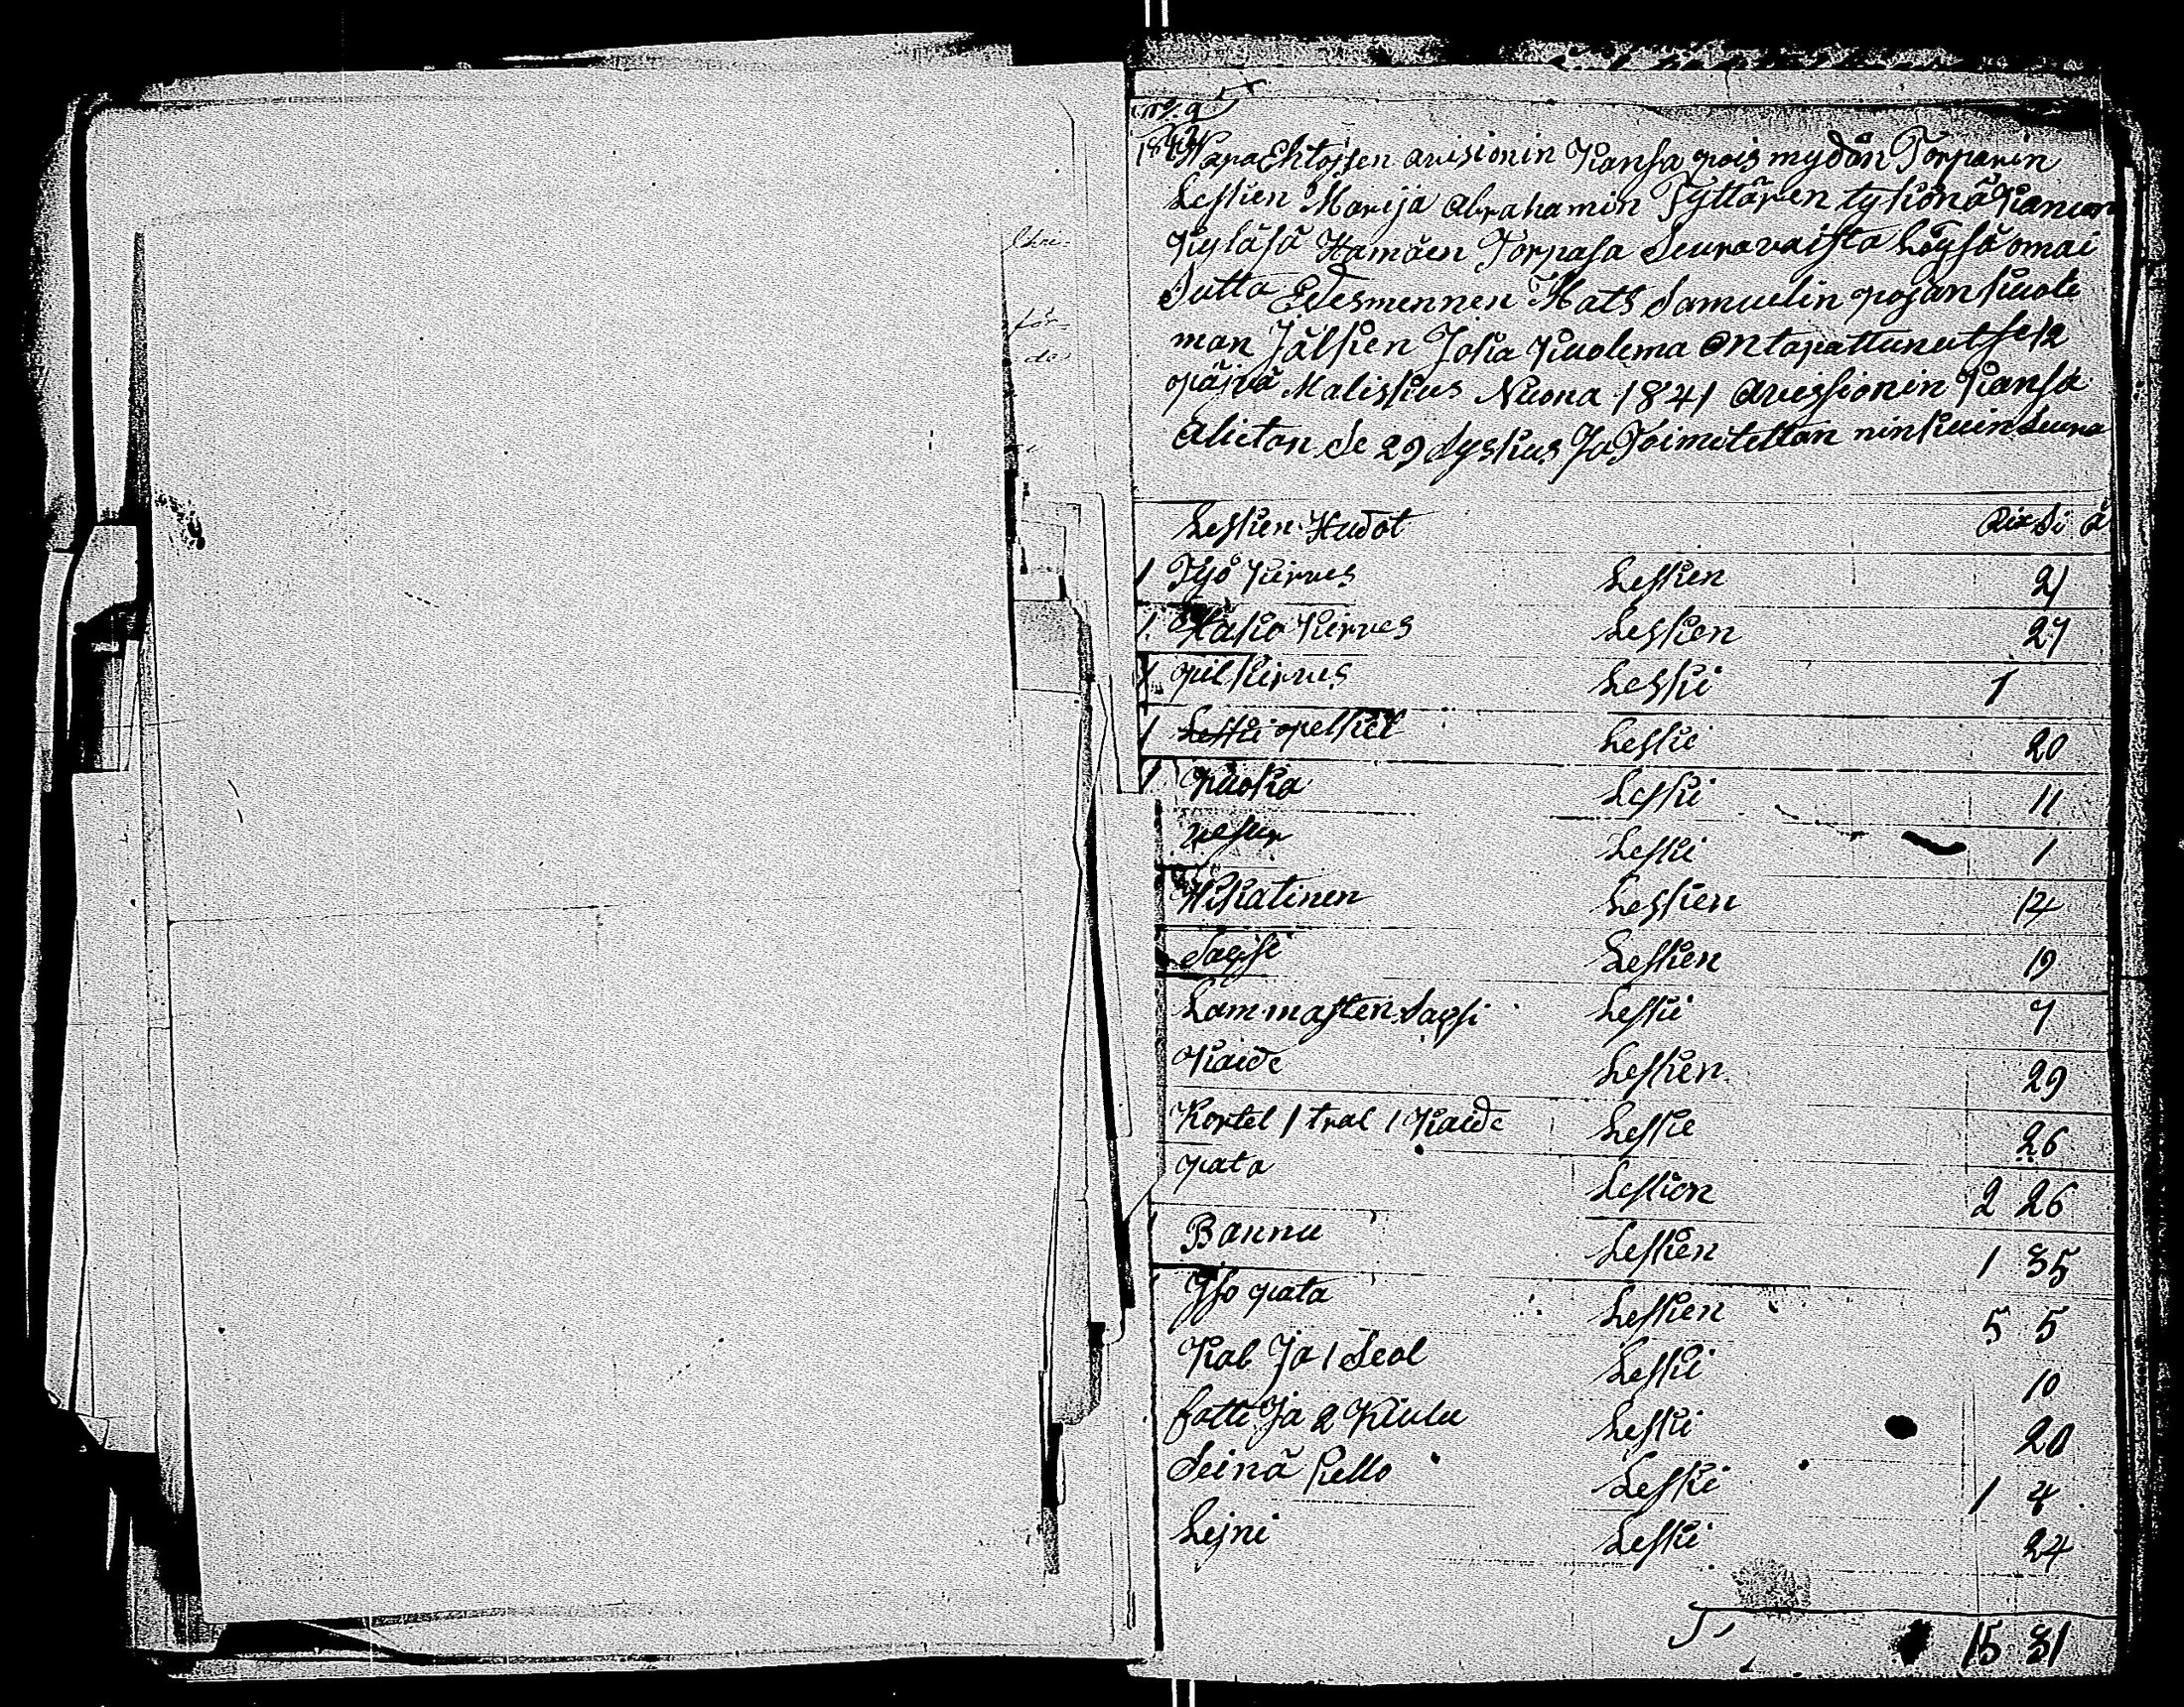 Chri-
för-
das
No. 9
Wapa Ehtojsen avisionin kansa pois mydän Torparin
Leskien Marija Abrahamin Tyttären tykönä
kyläsä Hamäen Torpasa Seuravaista Löysä omai
sutta Edesmennen Mats Samuelin pojan kuole
man Jälkien Joka kuolema On tapattunut se 12
päjvä Maliskus Nuona 1841 avissionin kansa
Alietan Se 29 Syskus Ja Toimitettan ninkuin Seura
Leskien Hudot
1 Työ kirves Leskien 21
1 Kasko kirves Leskien 27
1 pilkirves Leski 1
1 Leski pelkiel Leski 20
1 kuoka Leski 11
vesur Leski 1
Wikatinen Leskien 14
Sapsi Leskien 19
Lammasten Sapsi Leski 7
kaide Leskien 29
Kortel 1 tral 1 kaide Leskie 26
pata Leskien 2 26
Bannu Leskien 1 35
Yso pata Leskien 5 5
Kal Ja 1 Seol Leski 10
fotti Ja 2 Kiulu Leski 20
Seinä kello Leski 1 4
Lejni Leski 24
15 31